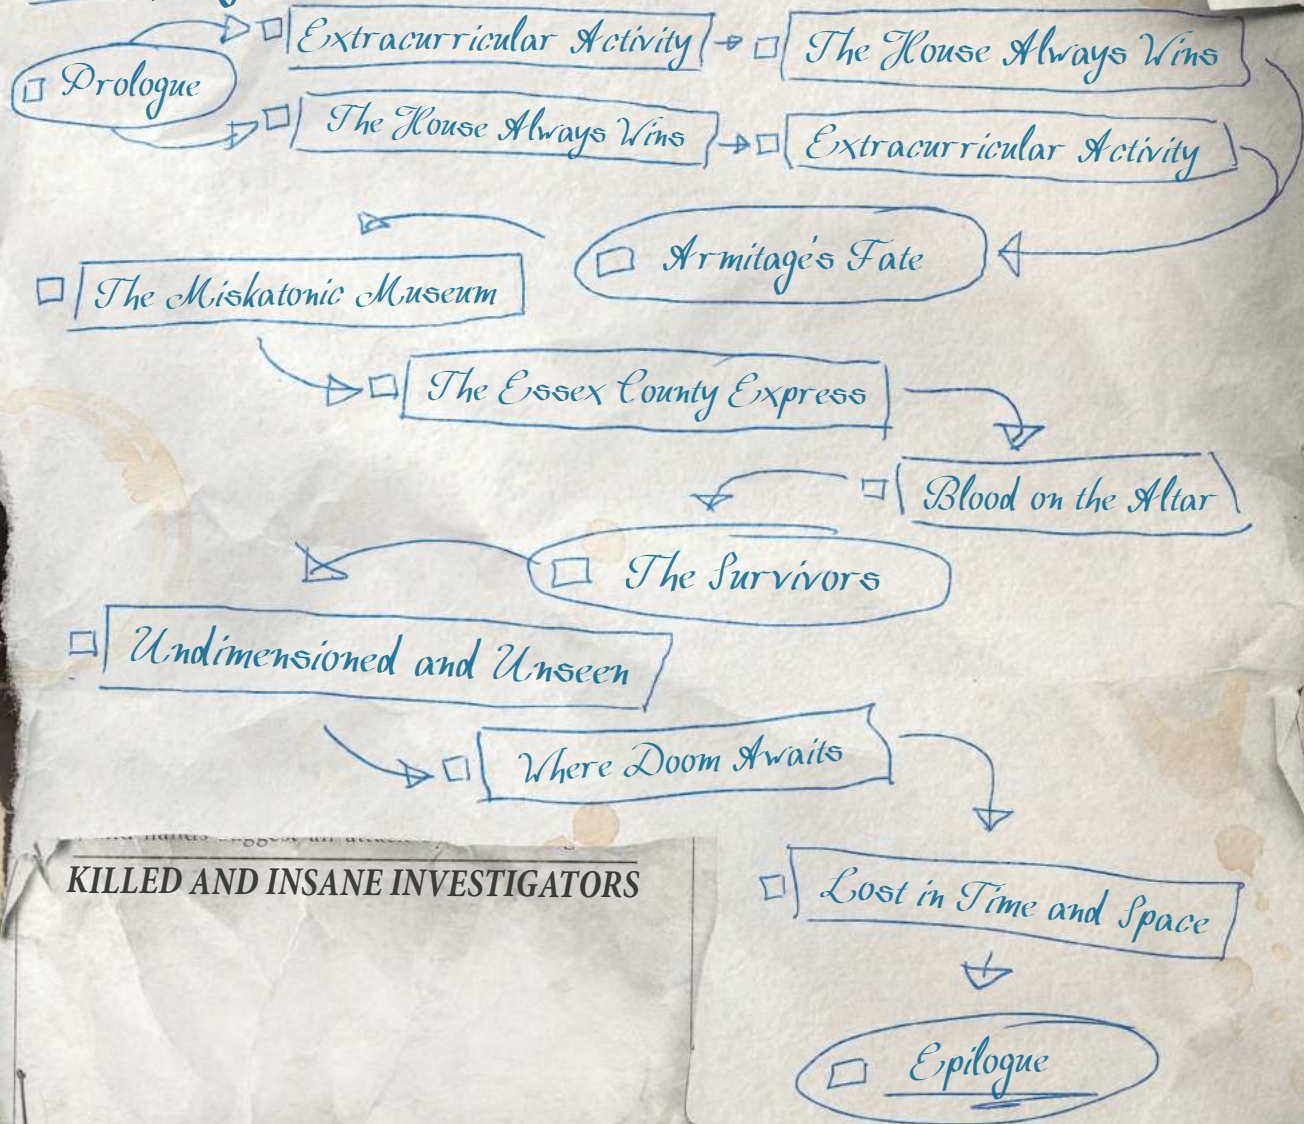 Extracurricular Activity
The House Always Wins
Prologue
The House Always Wins
Extracurricular Activity
Armitage's Fate
The Miskatonic Museum
The Essex County Express
Blood on the Altar
The Survivors
Undimensioned and Unseen
Where Doom Awaits
hands suggest an attack
KILLED AND INSANE INVESTIGATORS
Lost in Time and Space
Epilogue